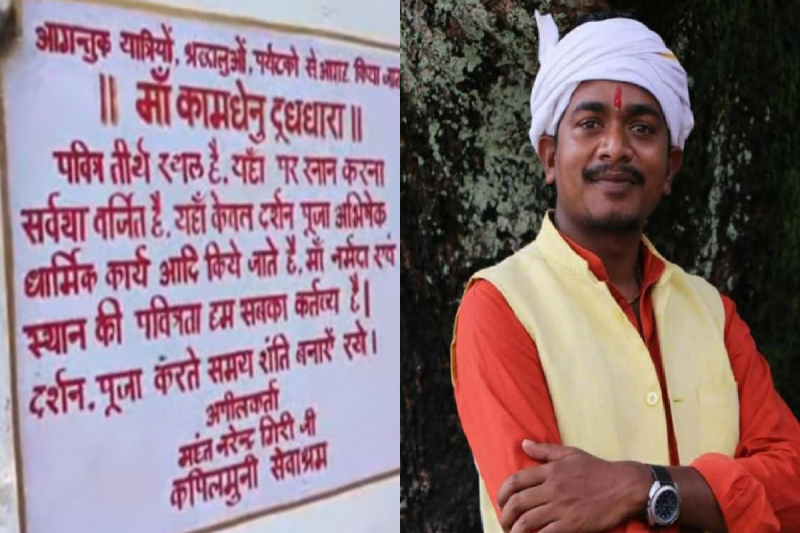 आगन्तुक यात्रियों, श्रध्दालुओं, पर्यटको से आग्रह किया जाता
॥ माँ कामधेनु दूधधारा ॥
पवित्र तीर्थ स्थल है, यहाँ पर स्नान करना
सर्वथा वर्जित है, यहाँ केवल दर्शन पूजा अभिषेक
धार्मिक कार्य आदि किये जाते है, माँ नर्मदा एवं
स्थान की पवित्रता हम सबका कर्तव्य है।
दर्शन, पूजा करते समय शांति बनाऐं रखे।
अपीलकर्ता
महंत नरेन्द्र गिरी जी
कपिलमुनी सेवाश्रम